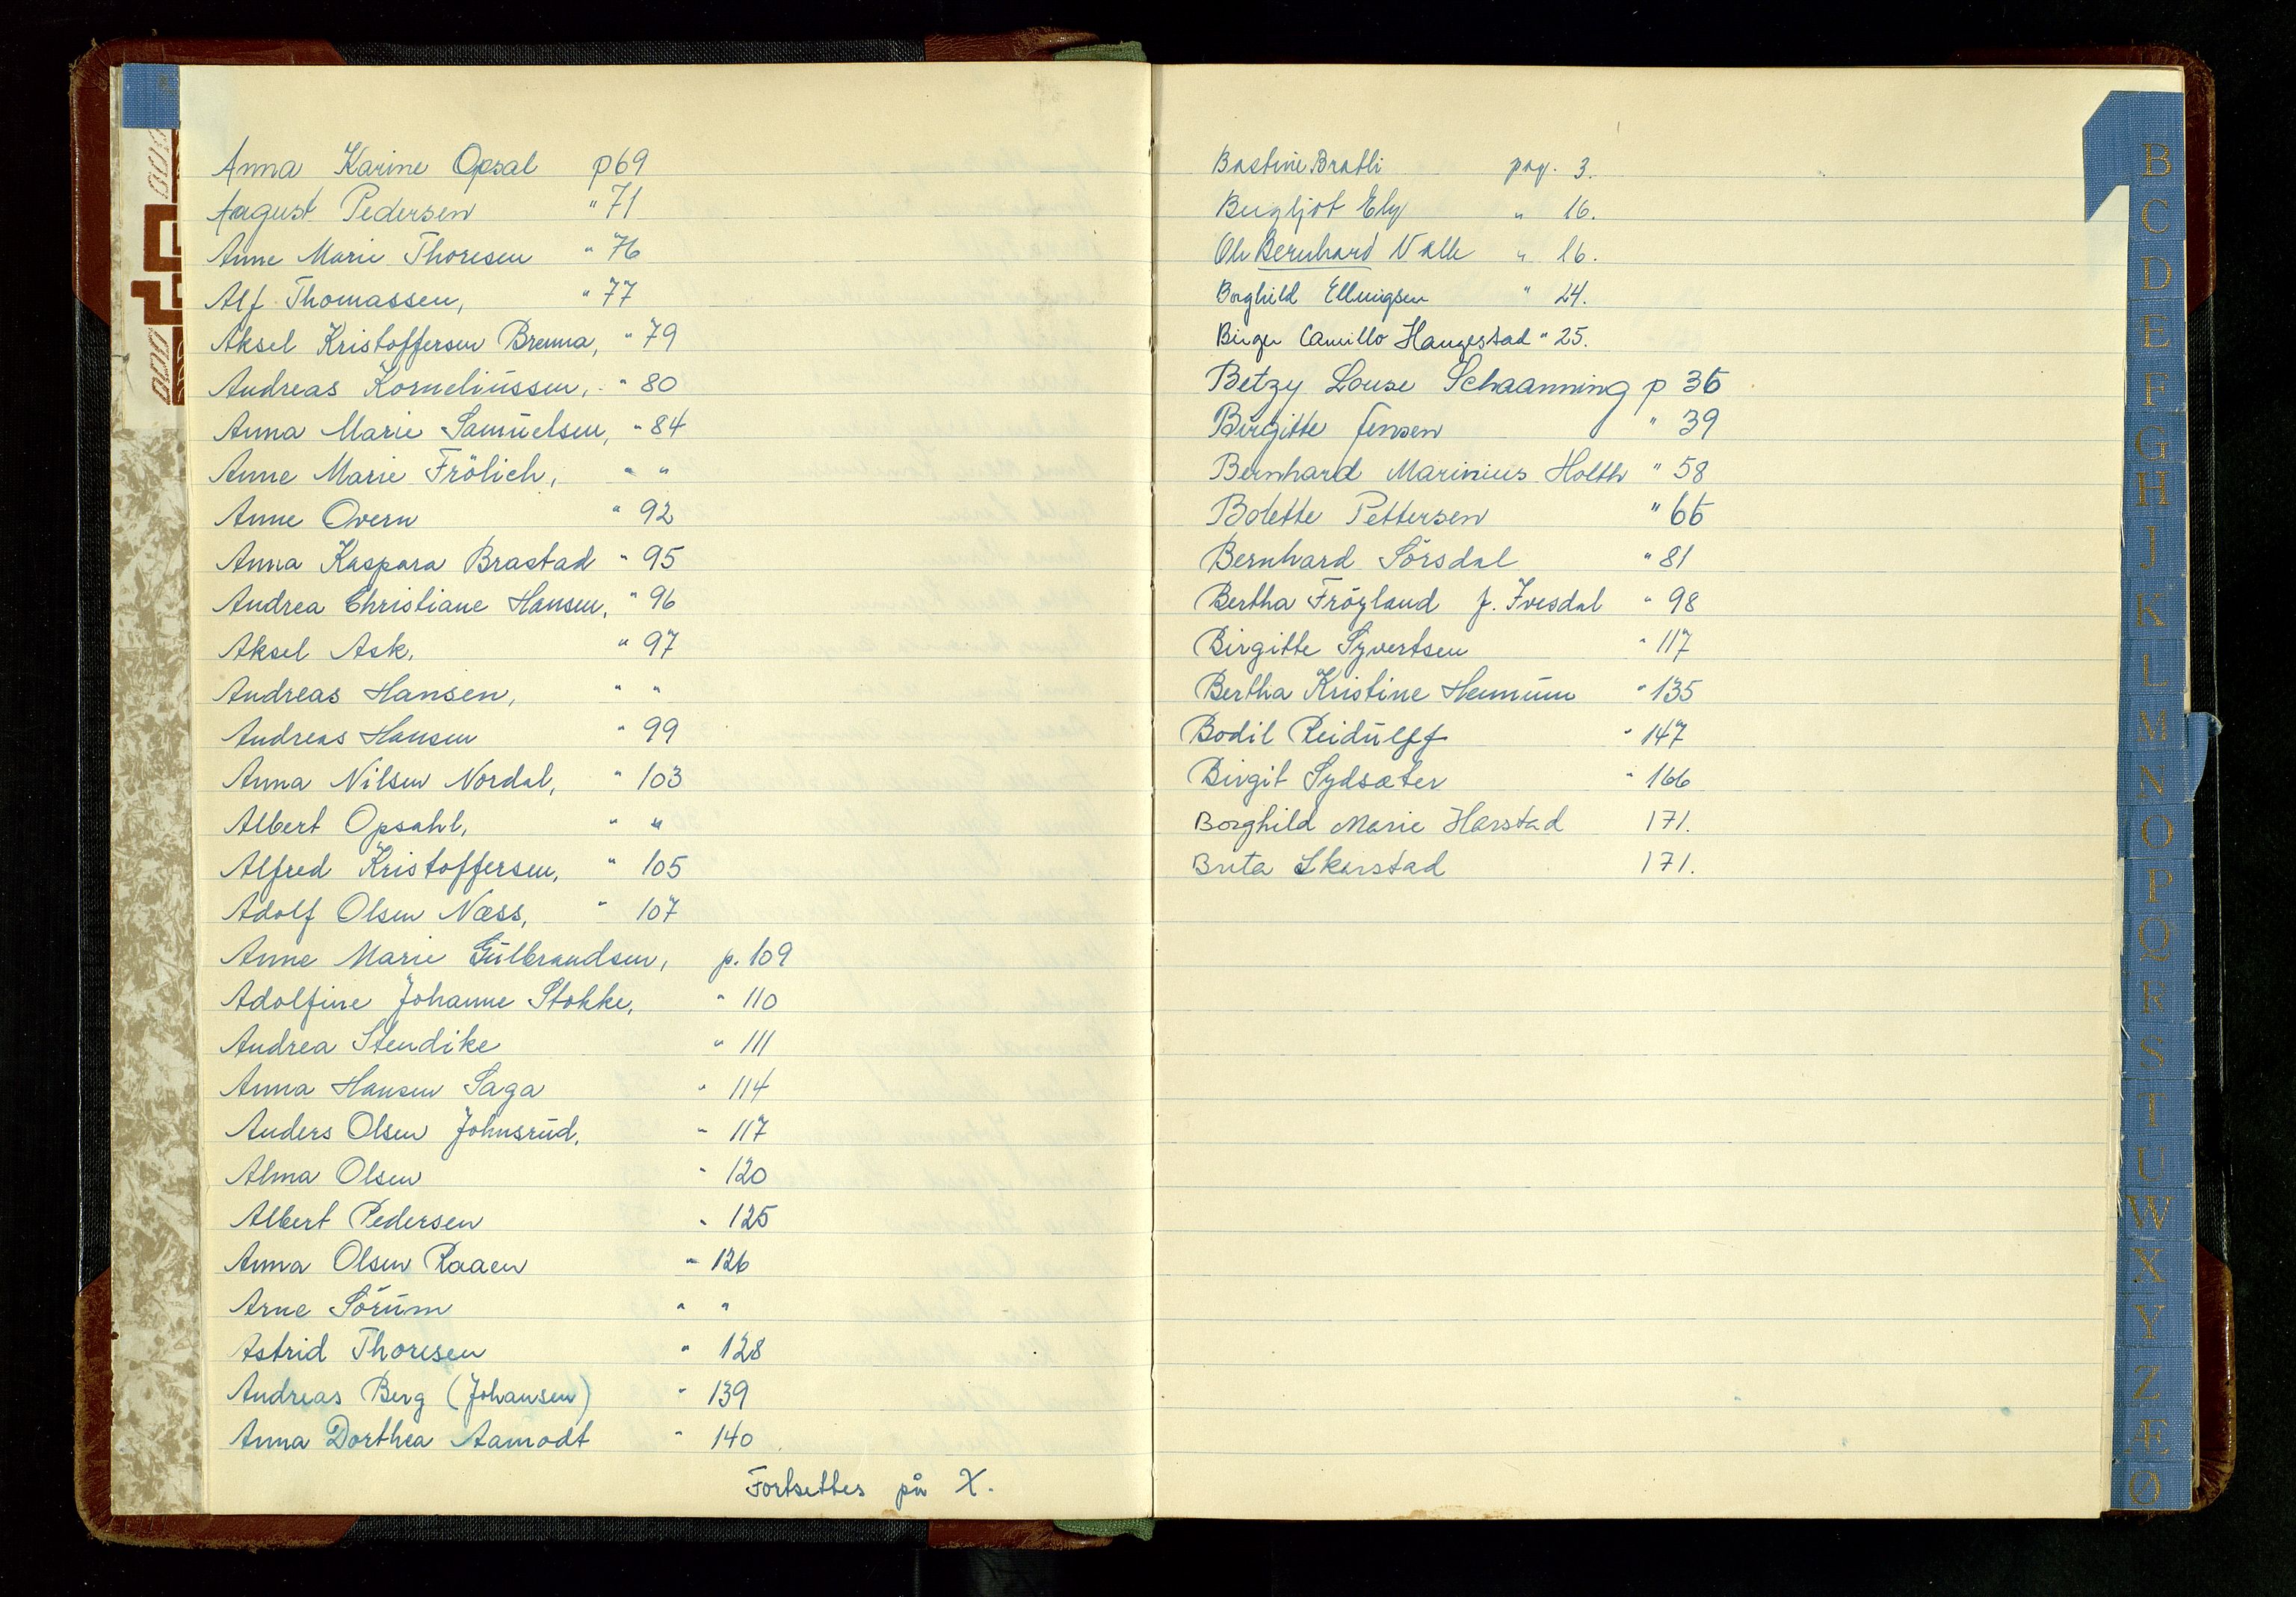 Anna Karine Opsal p 69
August Pedersen " 71
Anne Marie Thoresen " 76
Alf Thomassen, " 77
Aksel Kristoffersen Brenna, " 79
Andreas Korneliussen, " 80
Anna Marie Samuelsen, " 84
Anne Marie Frölich, " "
Anne Overn " 92
Anna Kaspara Brastad " 95
Andrea Christiane Hansen, " 96
Aksel Ask, " 97
Andreas Hansen, " "
Andreas Hansen " 99
Anna Nilsen Nordal, " 103
Albert Opsahl, " "
Alfred Kristoffersen, " 105
Adolf Olsen Næss, " 107
Anne Marie Gulbrandsen, p. 109
Adolfine Johanne Stokke, " 110
Andrea Stendike " 111
Anna Hansen Saga " 114
Anders Olsen Johnsrud, " 117
Alma Olsen " 120
Albert Pedersen " 125
Anna Olsen Raaen " 126
Arne Sörum " "
Astrid Thoresen " 128
Andreas Berg (Johansen) " 139
Anna Dorthea Aamodt " 140
Fortsettes på X.
Bastine Bratli pag. 3.
Bergljot Ely " 16.
Ole Bernhard Valle " 16.
Borghild Ellingsen " 24.
Birger Camillo Haugestad " 25.
Betzy Louse Schaanning p 36
Birgitte Jensen " 39
Bernhard Marinius Holth " 58
Bolette Pettersen " 66
Bernhard Sörsdal " 81
Bertha Fröyland f. Ivesdal " 98
Birgitte Syvertsen " 117
Bertha Kristine Hennum " 135
Bodil Reidulff " 147
Birgit Sydsæter " 166
Borghild Marie Harstad 171.
Brita Skarstad 171.
B
C
D
E
F
G
H
J
K
L
M
N
O
P
Q
R
S
T
U
W
X
Y
Z
Æ
Ø